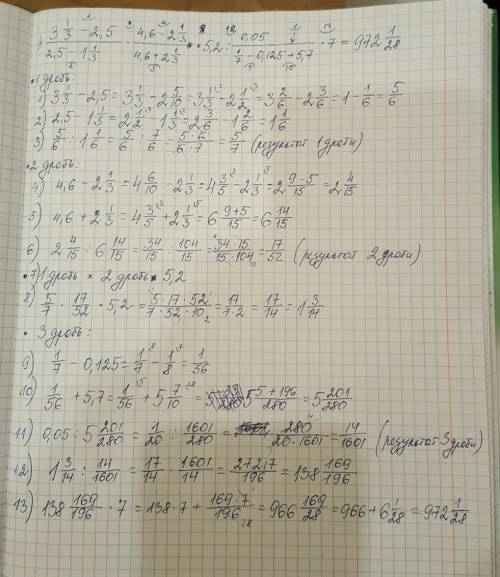 (3 1/3 - 2,5)/(2,5 - 1 1/3) · (4,6 - 2 1/3)/(4,6 + 2 1/3) · 5,2 : 0,05/(1/7 - 0,125 + 5,7) · 7 = 972 1/28
• 1 дробь:
1) 3 1/3 - 2,5 = 3 1/3 - 2 5/10 = 3 1/3 - 2 1/2 = 3 2/6 - 2 3/6 = 1 - 1/6 = 5/6
2) 2,5 - 1 1/3 = 2 1/2 - 1 1/3 = 2 3/6 - 1 2/6 = 1 1/6
3) 5/6 : 1 1/6 = 5/6 · 6/7 = 5·6/6·7 = 5/7 (результат 1 дроби)
• 2 дробь:
4) 4,6 - 2 1/3 = 4 6/10 - 2 1/3 = 4 3/5 - 2 1/3 = 2 9-5/15 = 2 4/15
5) 4,6 + 2 1/3 = 4 3/5 + 2 1/3 = 6 9+5/15 = 6 14/15
6) 2 4/15 : 6 14/15 = 34/15 : 104/15 = 34·15/15·104 = 17/52 (результат 2 дроби)
• 7) 1 дробь × 2 дробь · 5,2
8) 5/7 · 17/52 · 5,2 = 5·17·52/7·52·10 = 17/7·2 = 17/14 = 1 3/14
• 3 дробь:
9) 1/7 - 0,125 = 1/7 - 1/8 = 1/56
10) 1/56 + 5,7 = 1/56 + 5 7/10 = 5 5+196/280 = 5 201/280
11) 0,05 : 5 201/280 = 1/20 : 1601/280 = 280/20·1601 = 14/1601 (результат 3 дроби)
12) 1 3/14 : 14/1601 = 17/14 · 1601/14 = 27217/196 = 138 169/196
13) 138 169/196 · 7 = 138·7 + 169·7/196 = 966 169/28 = 966 + 6 1/28 = 972 1/28